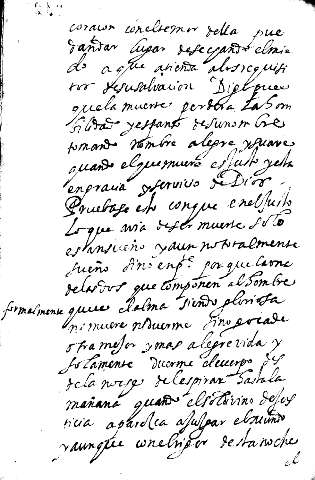 coraçon con el temor della pue
dan dar lugar desechando el mie
do a que atienda a los requisi
tos de su salvacion Digo pues
que la muerte perdera la hor
ribilidad y espanto de su nombre
tomando nombre alegre y suave
quando el que muere es justo y esta
en gracia y servicio de Dios.
Pruebase esto con que en el justo
lo que avia de ser muerte solo
es un sueño y aun no totalmente
sueño sino en pte porque la una
de las dos que componen al hombre
formalmente que es el alma siendo gloriosa
no muere ni duerme sino va a
otra mejor y mas alegre vida y
solamente duerme el cuerpo des
de la noche del espirar hasta la
mañana quando el sol divino de jus
ticia aparezca a juzgar el mundo
y aunque con el rigor desta noche
el